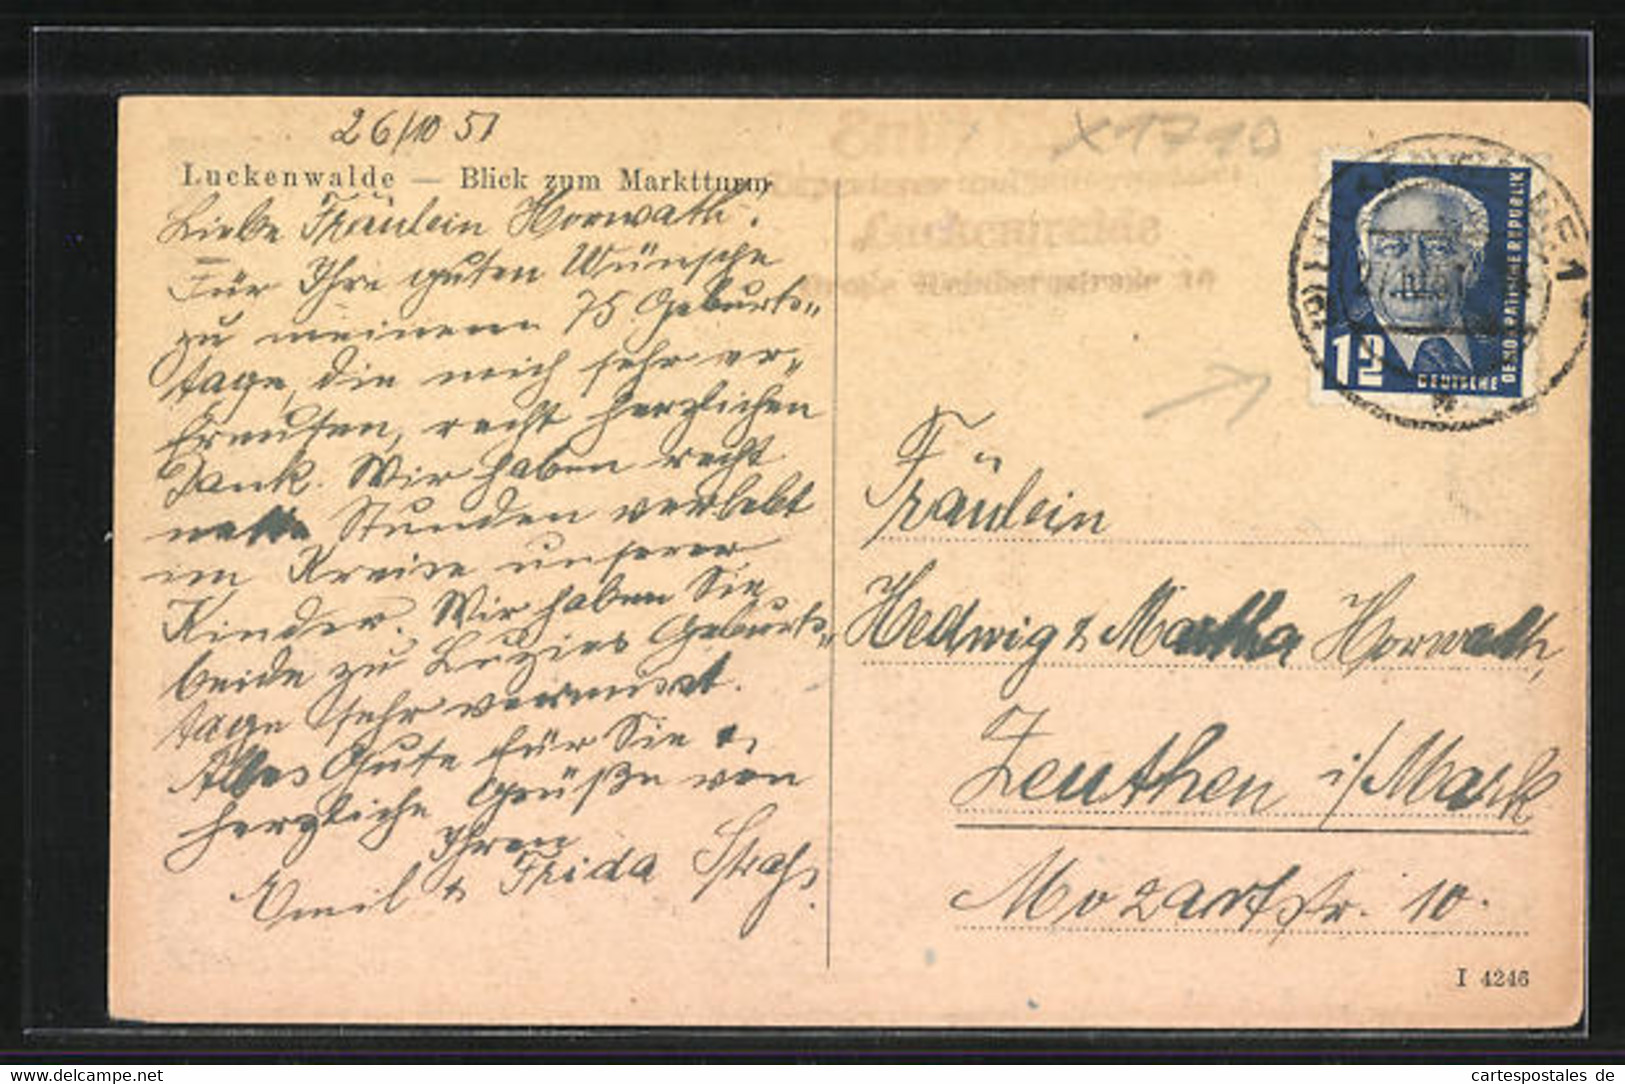 26/10 51
Luckenwalde — Blick zum Marktturm
Liebe Fräulein Horwath!
Für Ihre guten Wünsche
zu meinem 75. Geburts-
tage, die mich sehr er-
freuten, recht herzlichen
Dank. Wir haben recht
nette Stunden verlebt
im Kreise unserer
Kinder. Wir haben Sie
beide zu Luzies Geburts-
tage sehr vermisst.
Alles Gute für Sie u.
herzliche Grüße von
Ihren
Emil & Frida
x1710
12
DEUTSCHE
DEMOKRATISCHE REPUBLIK
Fräulein
Hedwig & Martha Horwath,
Zeuthen i/Mark
Mozartstr. 10.
I 4246
cartespostales.de
cartespostales de